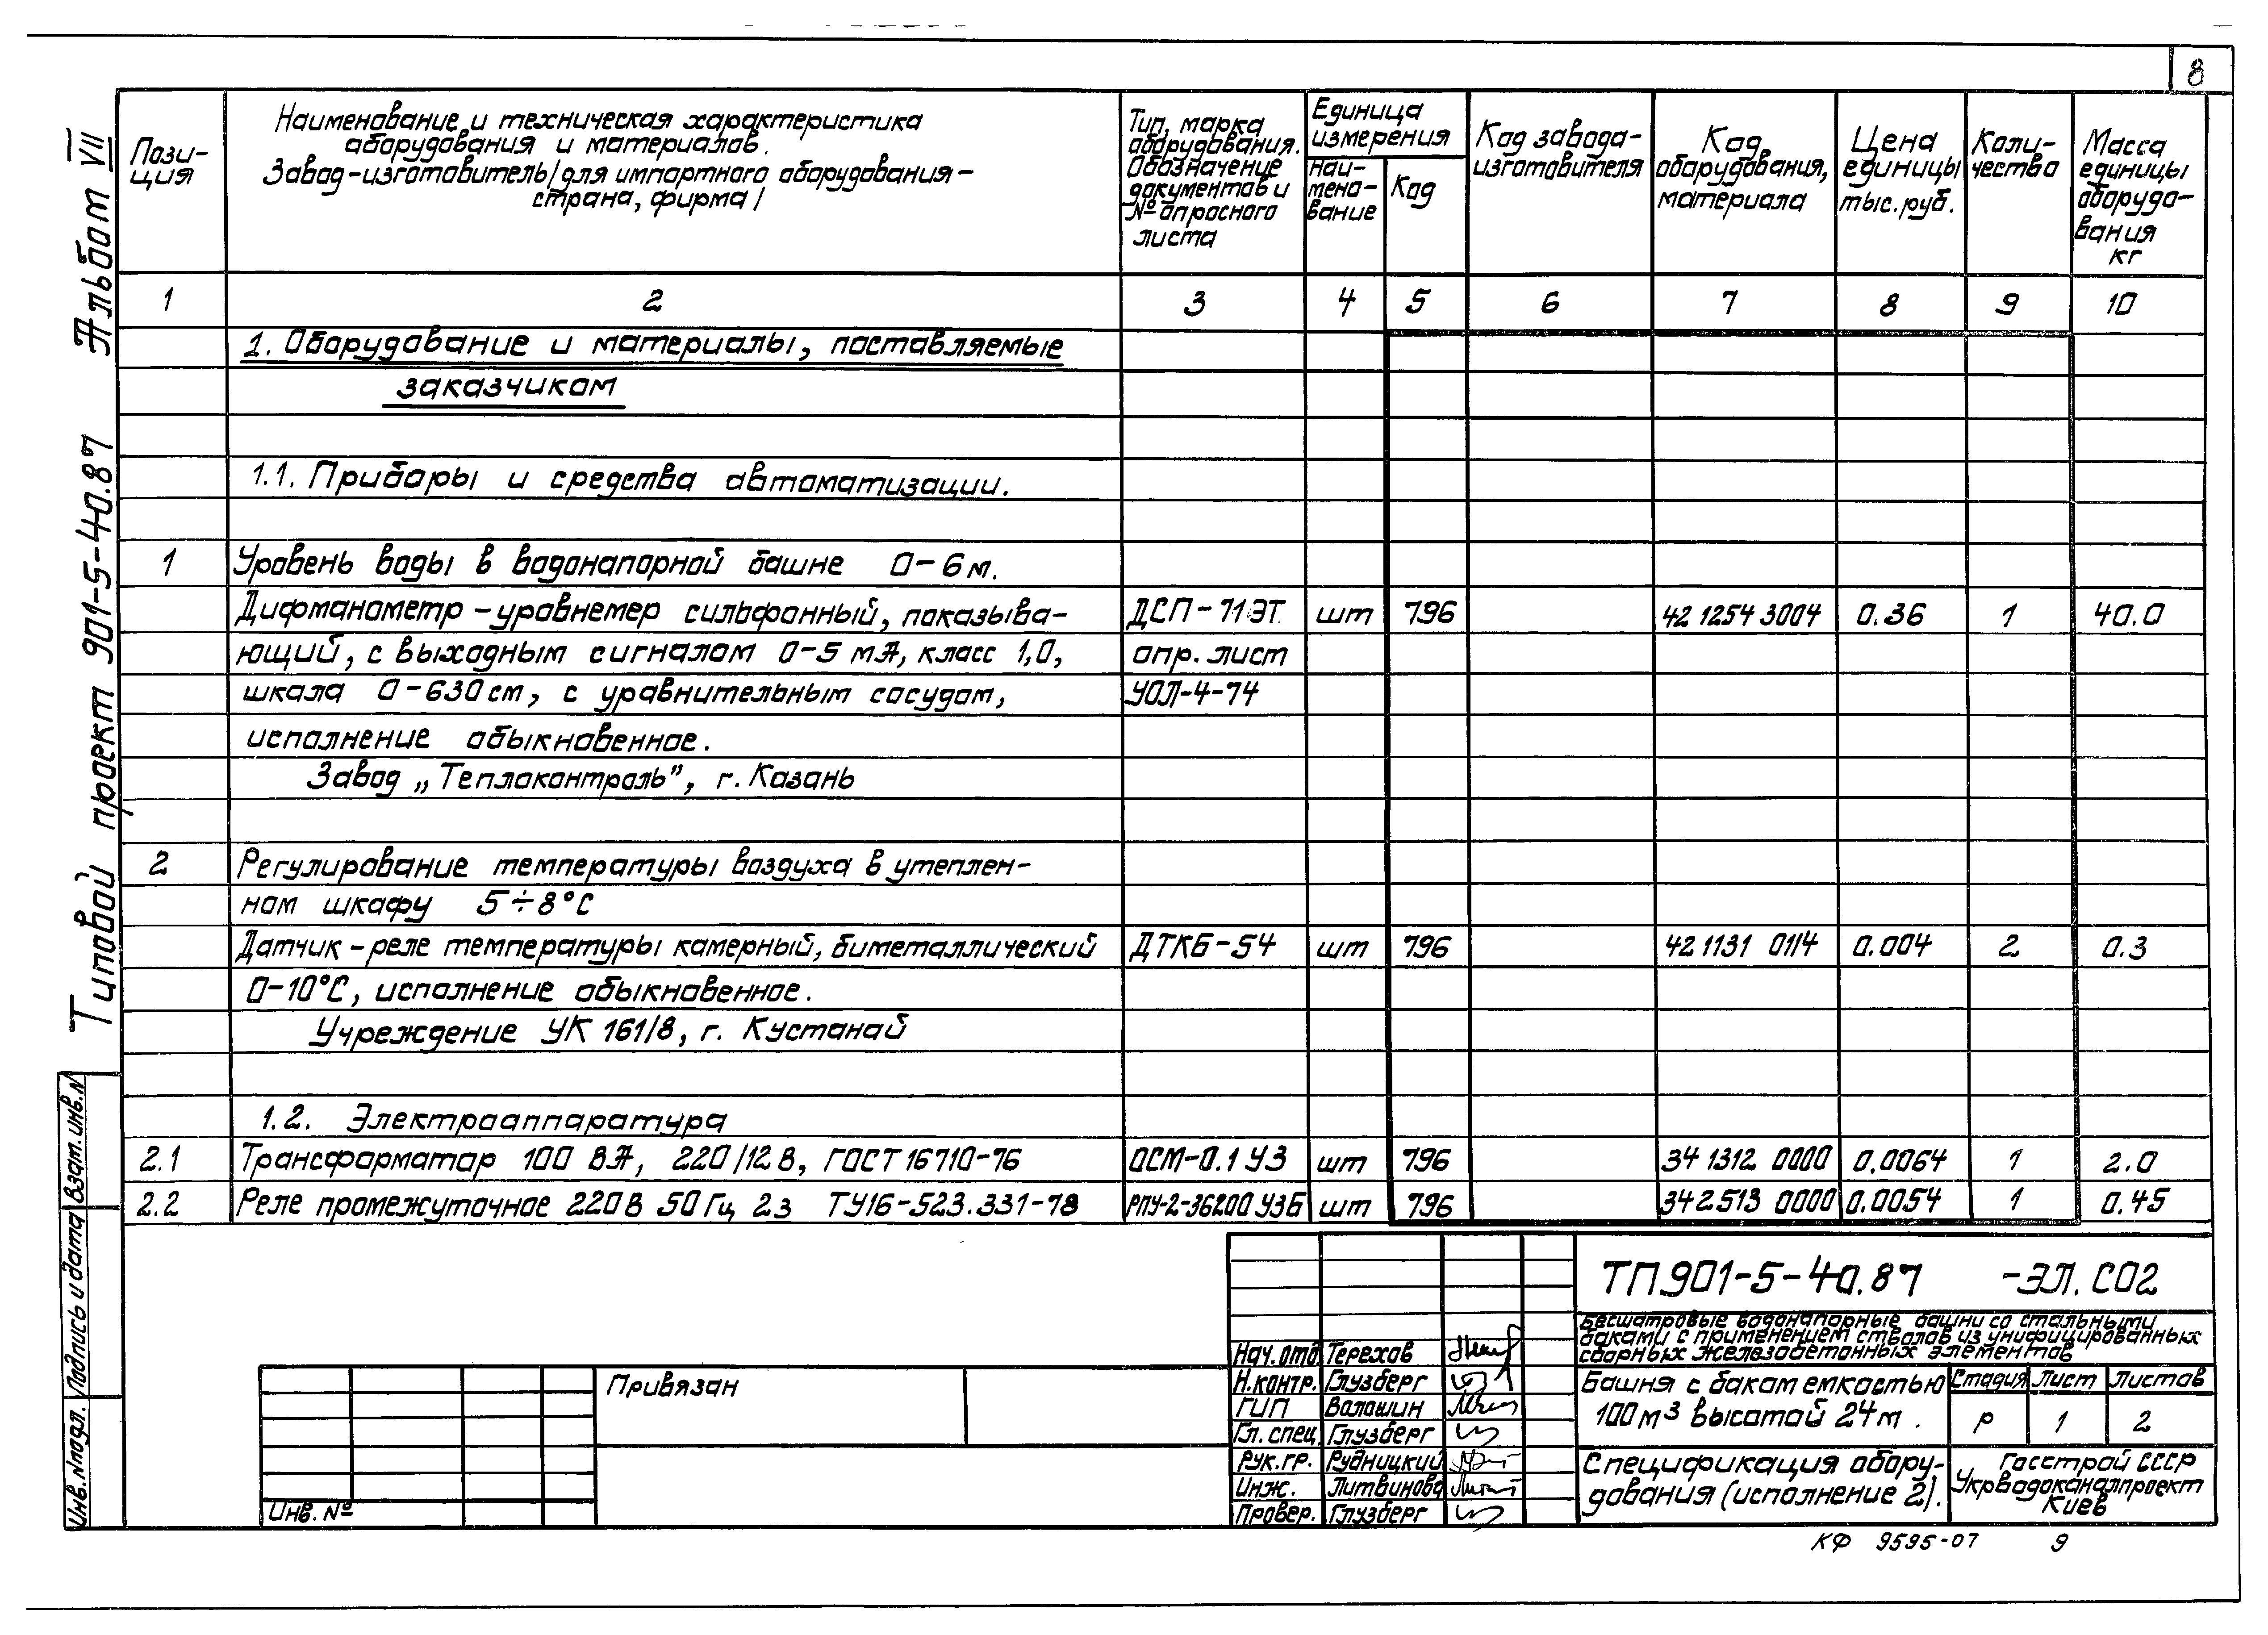 8
Альбом VII
Типовой проект 901-5-40.87
Пози-
ция
Наименование и техническая характеристика
оборудования и материалов.
Завод-изготовитель/для импортного оборудования-
страна, фирма/
Тип, марка
оборудования.
Обозначение
документов и
№ опросного
листа
Единица
измерения
Наи-
мено-
вание
Код
Код завода-
изготовителя
Код
оборудования,
материала
Цена
единицы
тыс.руб.
Коли-
чество
Масса
единицы
оборудо-
вания
кг
1 2 3 4 5 6 7 8 9 10
1. Оборудование и материалы, поставляемые
заказчиком
1.1. Приборы и средства автоматизации.
1 Уровень воды в водонапорной башне 0-6м.
Дифманометр-уровнемер сильфонный, показыва- ДСП-71ЭТ. шт 796 42 1254 3004 0.36 1 40.0
ющий, с выходным сигналом 0-5 мА, класс 1,0, опр. лист
шкала 0-630см, с уравнительным сосудом, УОЛ-4-74
исполнение обыкновенное.
Завод „Теплоконтроль”, г. Казань
2 Регулирование температуры воздуха в утеплен-
ном шкафу 5÷8°С
Датчик-реле температуры камерный, биметаллический ДТКБ-54 шт 796 42 1131 0114 0.004 2 0.3
0-10°С, исполнение обыкновенное.
Учреждение УК 161/8, г. Кустанай
1.2. Электроаппаратура
2.1 Трансформатор 100 ВА, 220/12 В, ГОСТ 16710-76 ОСМ-0.1 У3 шт 796 34 1312 0000 0.0064 1 2.0
2.2 Реле промежуточное 220В 50Гц 2з ТУ16-523.331-78 РПУ-2-36200 У3Б шт 796 342513 0000 0.0054 1 0.45
Взам.инв.N
Подпись и дата
Инв.Nподл.
ТП 901-5-40.87 -ЭЛ.СО2
Бесшатровые водонапорные башни со стальными
баками с применением стволов из унифицированных
сборных железобетонных элементов
Нач.отд. Терехов
Н.контр. Глузберг
ГИП Волошин
Гл. спец. Глузберг
Рук.гр. Рудницкий
Инж. Литвинова
Провер. Глузберг
Башня с баком емкостью
100м³ высотой 24м.
Стадия Лист Листов
Р 1 2
Спецификация обору-
дования (исполнение 2).
Госстрой СССР
Укрводоканалпроект
Киев
Привязан
Инв. №
КФ 9595-07 9